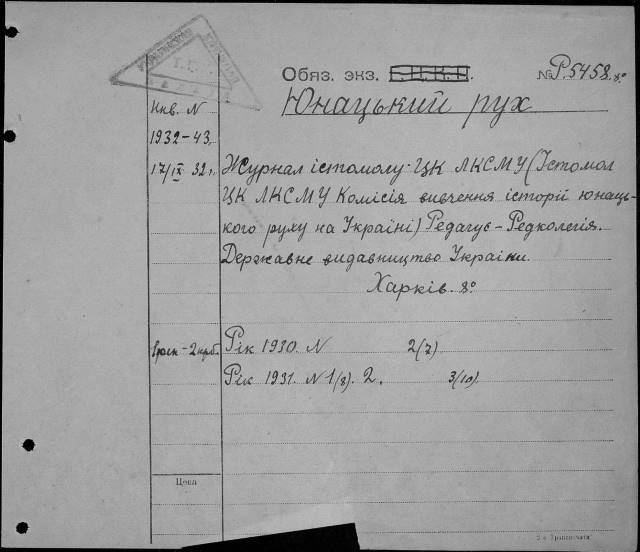 Обяз. экз. Г.Ц.К.П. № Р.5458.8°
Юнацький рух
Инв. N
1932-43.
17/IX 32 г.
Журнал істомолу ЦК ЛКСМУ (Істомол
ЦК ЛКСМУ Комісія вивчення історії юнаць-
кого руху на Україні) Редагує - Редколегія.
Державне видавництво України.
Харків 8°
2 крб. Рік 1930. N 2(7)
Рік 1931. N 1(8). 2. 3(10).
Цена